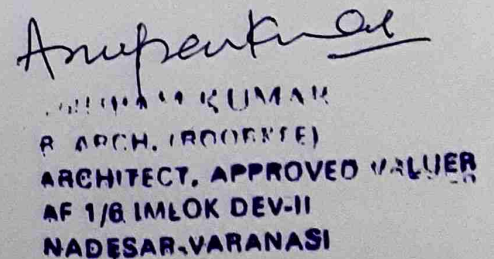 Anupam Kumar
ANUPAM KUMAR
B. ARCH. (ROORKEE)
ARCHITECT, APPROVED VALUER
AF 1/6 IMLOK DEV-II
NADESAR, VARANASI